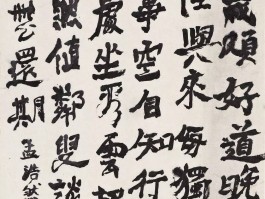 歲頗好道晚
陲興來每獨
事空自知行
處坐看雲
然值鄰叟談
無還期 孟浩然